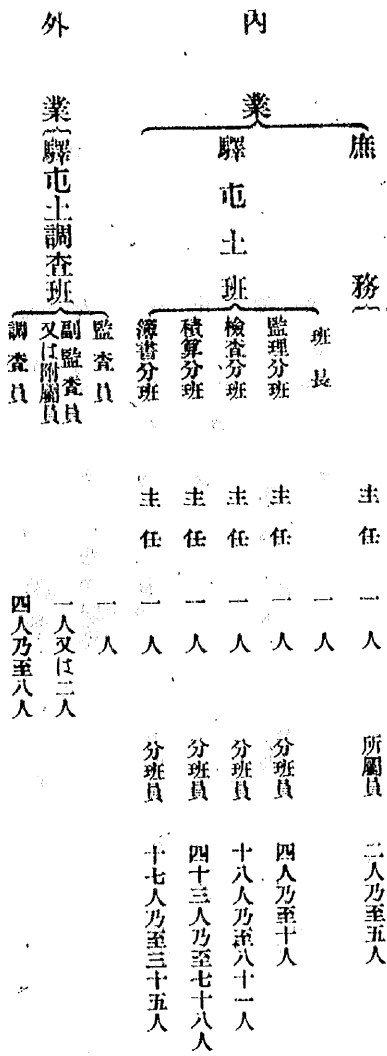 內業
庶務 主任 一人 所屬員 二人乃至五人
驛屯土班
班長 一人
監理分班 主任 一人 分班員 四人乃至十人
檢査分班 主任 一人 分班員 十八人乃至八十一人
積算分班 主任 一人 分班員 四十三人乃至七十八人
簿書分班 主任 一人 分班員 十七人乃至三十五人
外業 驛屯土調査班
監査員 一人
副監査員又は附屬員 一人又は二人
調査員 四人乃至八人